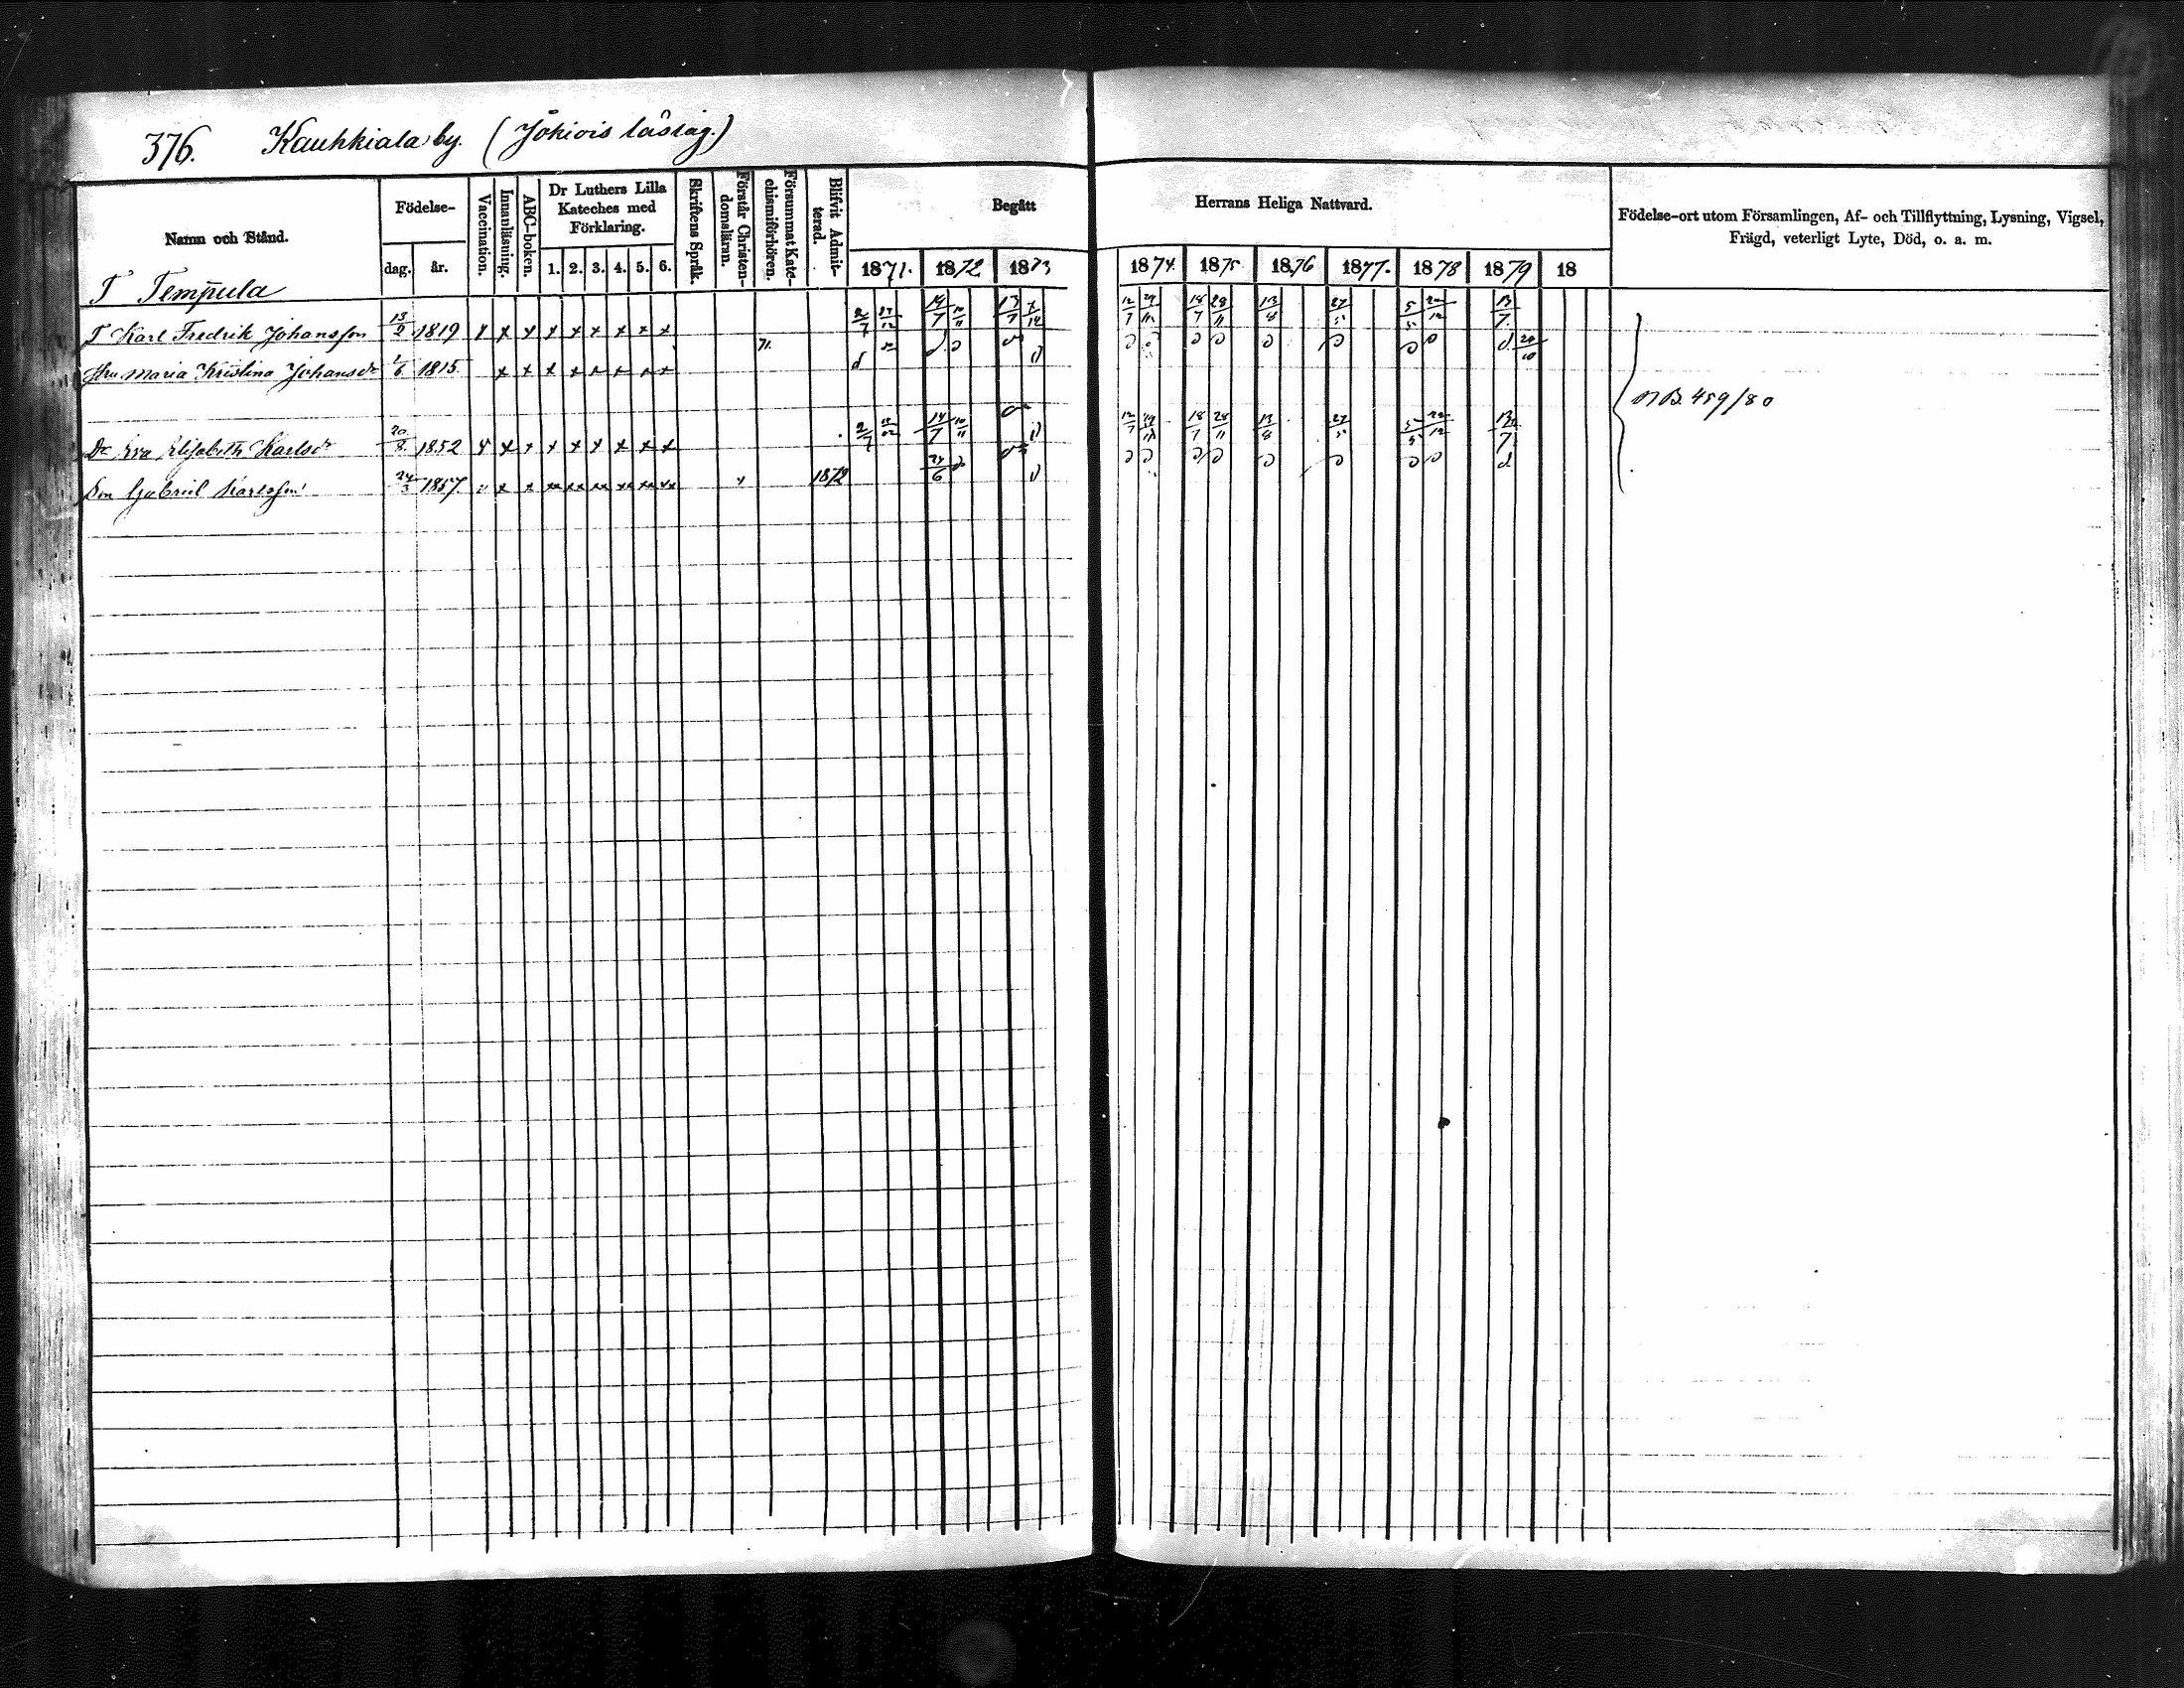 376. Kauhkiala by. (Jokiois låslag.)
Namn och Stånd.
Födelse-
dag. år.
Vaccination.
Innanläsning.
ABC-boken.
Dr Luthers Lilla
Kateches med
Förklaring.
1. 2. 3. 4. 5. 6.
Skriftens Språk.
Förstår Christen-
domsläran.
Försummat Kate-
chismiförhören.
Blifvit Admit-
terad.
Begått Herrans Heliga Nattvard.
1871. 1872 1873 1874. 1875 1876 1877. 1878 1879 18
Födelse-ort utom Församlingen, Af- och Tillflyttning, Lysning, Vigsel,
Frägd, veterligt Lyte, Död, o. a. m.
T Tempula
T Karl Fredrik Johansson 13/2 1819 x x x x x x x x x 2/7 14/7 10/11 13/7 12/7 18/7 28/11 13/8 27/5 5/5 22/12 13/7
Hu Maria Kristina Johansdr 1/6 1815 x x x x x x x x 71. d d d 24/10
Dr Eva Elisabeth Karlsdr 1852 x x x x x x x x x 2/7 14/7 10/11 12/7 18/7 28/11 13/8 27/5 5/5 22/12 13/7
Son Gabriel Karlsson 24/3 1857 x x x xx xx xx xx xx xx 1872 24/6 d
NB. 459/80